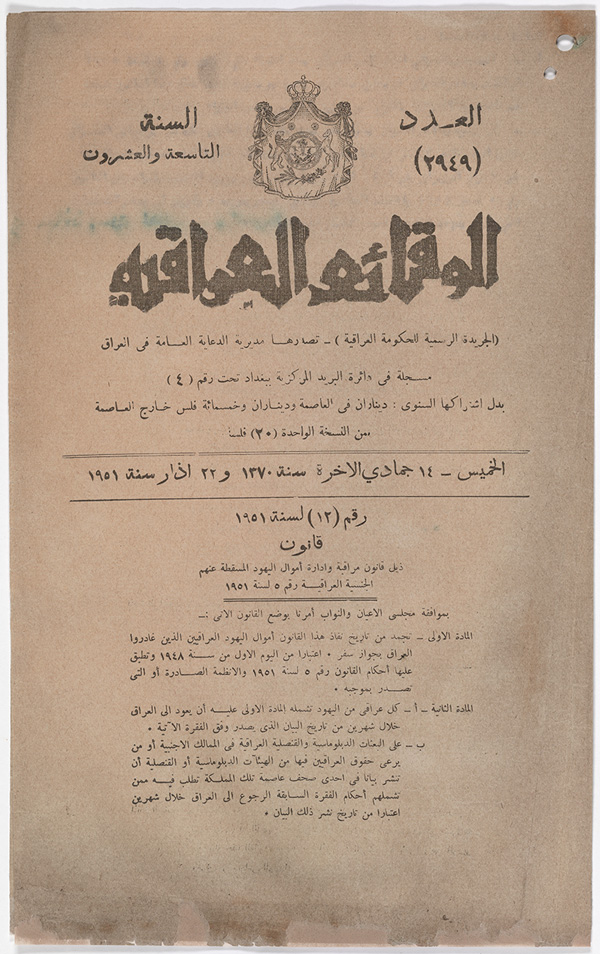 العدد
(٢٩٤٩)
السنة
التاسعة والعشرون
الوقائع العراقية
(الجريدة الرسمية للحكومة العراقية) ــ تصدرها مديرية الدعاية العامة في العراق
مسجلة في دائرة البريد المركزية ببغداد تحت رقم (٤)
بدل اشتراكها السنوي : ديناران في العاصمة وديناران وخمسمائة فلس خارج العاصمة
ثمن النسخة الواحدة (٢٠) فلسا
الخميس ــ ١٤ جمادي الاخرة سنة ١٣٧٠ و ٢٢ اذار سنة ١٩٥١
رقم (١٢) لسنة ١٩٥١
قانون
ذيل قانون مراقبة وادارة أموال اليهود المسقطة عنهم
الجنسية العراقية رقم ٥ لسنة ١٩٥١
بموافقة مجلسي الاعيان والنواب أمرنا بوضع القانون الاتي :ــ
المادة الاولى ــ تجمد من تاريخ نفاذ هذا القانون أموال اليهود العراقيين الذين غادروا
العراق بجواز سفر ٠ اعتبارا من اليوم الاول من سنة ١٩٤٨ وتطبق
عليها أحكام القانون رقم ٥ لسنة ١٩٥١ والانظمة الصادرة أو التي
تصدر بموجبه ٠
المادة الثانية ــ أ ــ كل عراقي من اليهود تشمله المادة الاولى عليه أن يعود الى العراق
خلال شهرين من تاريخ البيان الذي يصدر وفق الفقرة الآتية ٠
ب ــ على البعثات الدبلوماسية والقنصلية العراقية في الممالك الاجنبية أو من
يرعى حقوق العراقيين فيها من الهيئات الدبلوماسية أو القنصلية أن
تنشر بيانا في احدى صحف عاصمة تلك المملكة تطلب فيه ممن
تشملهم أحكام الفقرة السابقة الرجوع الى العراق خلال شهرين
اعتبارا من تاريخ نشر ذلك البيان ٠